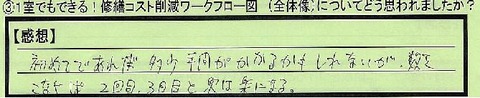 ③1室でもできる！修繕コスト削減ワークフロー図（全体像）についてどう思われましたか？
【感想】
初めてであれば多少手間がかかるかもしれないが、数を
こなせば2回目、3回目と実は楽になる。